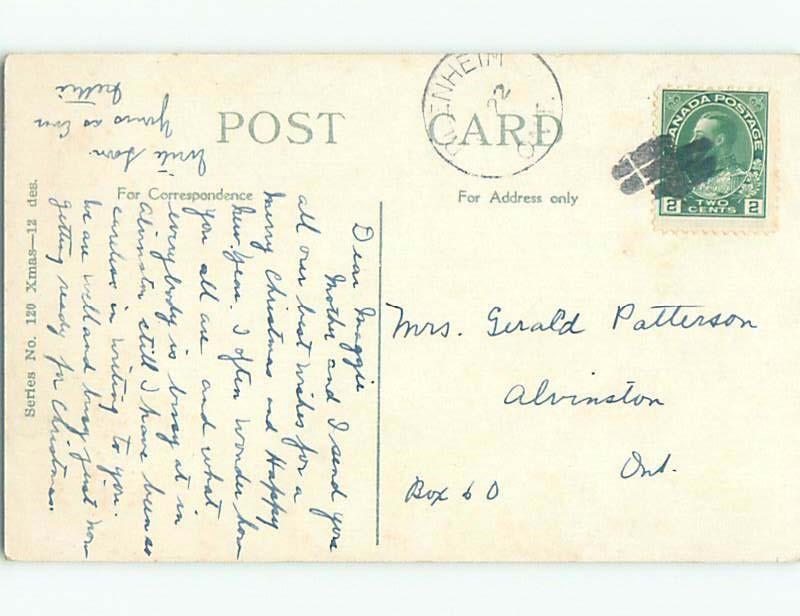 POST CARD
For Correspondence
For Address only
Series No. 120 Xmas—12 des.
Dear Maggie
Mother and I send you
all our best wishes for a
Merry Christmas and Happy
New Year. I often wonder how
you all are and what
everybody is busy at in
Alvinston still I have been so
careless in writing to you.
We are well and busy just now
getting ready for Christmas.
Write soon
Yours as Ever
Nettie
ENHEIM
22
ONT.
CANADA POSTAGE
2 TWO CENTS 2
Mrs. Gerald Patterson
Alvinston
Ont.
Box 60